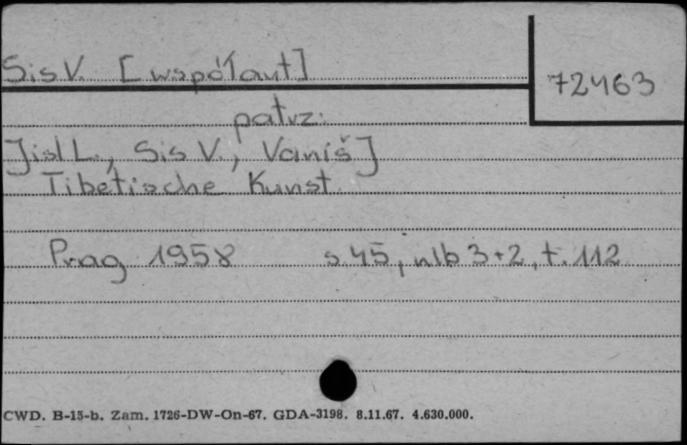 Sis V. [współaut]
72463
patrz:
Jisl L., Sis V., Vaniš J
Tibetische Kunst.
Prag 1958 s 45, nlb 3+2, t. 112
CWD. B-15-b. Zam. 1726-DW-On-67. GDA-3198. 8.11.67. 4.630.000.